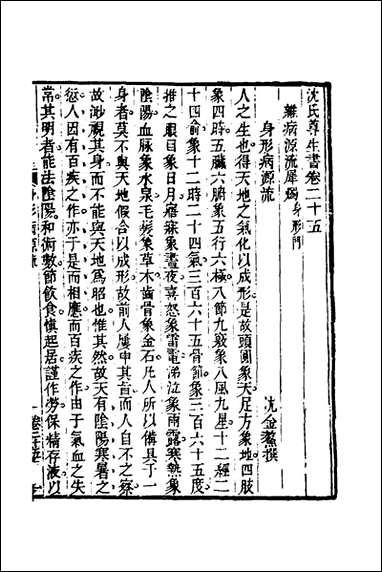 沈氏尊生書卷二十五
雜病源流犀燭 身形門
沈金鰲撰
身形病源流
人之生也得天地之氣化以成形是故頭圓象天足方象地四肢
象四時五臟六腑象五行六極八節九竅象八風九星十二經二
十四俞象十二時二十四氣三百六十五骨節象三百六十五度
推之眼目象日月寤寐象晝夜喜怒象雷電涕泣象雨露寒熱象
陰陽血脈象水泉毛髮象草木齒骨象金石凡人所以備具于一
身者莫不與天地假合以成形故前人屢申其旨而人自不之察
故渺視其身而不能與天地為昭也惟其然故天有陰陽寒暑之
愆人因有百疾之作亦于是而相應而百疾之作由于氣血之失
常其明者能法陰陽和術數節飲食慎起居謹作勞保精存液以